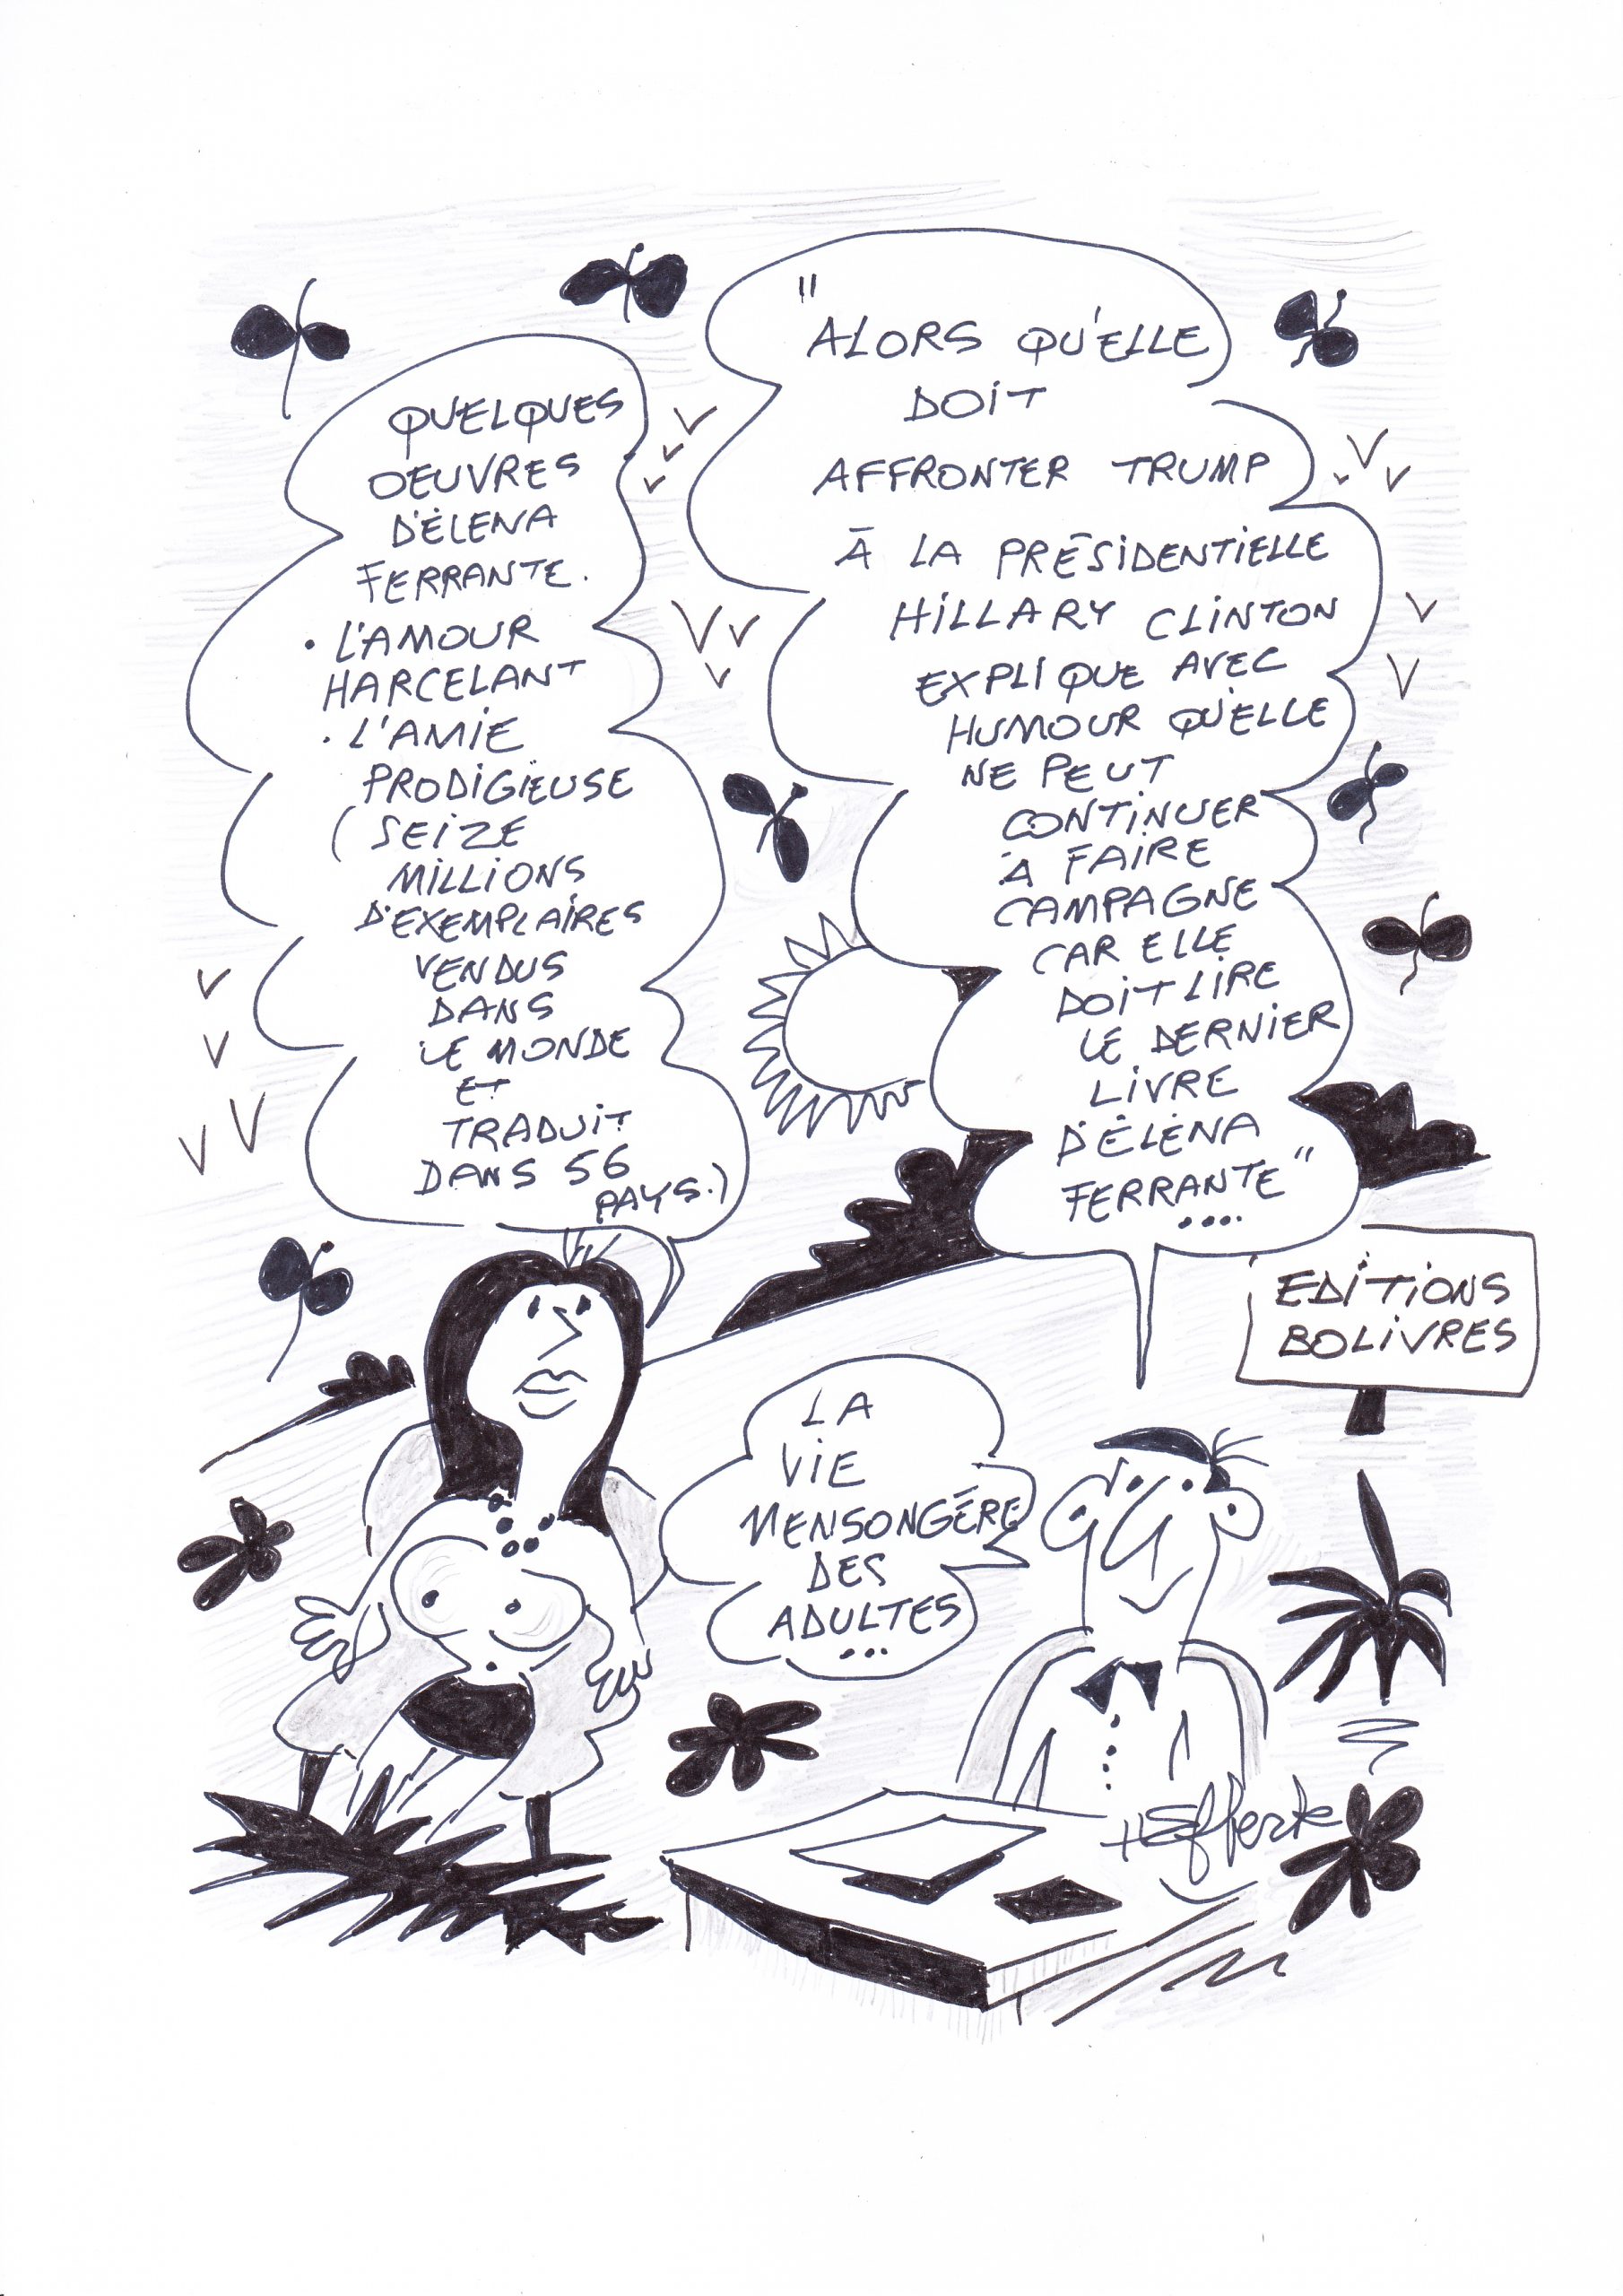 QUELQUES
OEUVRES
D'ÉLENA
FERRANTE.
. L'AMOUR
HARCELANT
. L'AMIE
PRODIGIEUSE
(SEIZE
MILLIONS
D'EXEMPLAIRES
VENDUS
DANS
LE MONDE
ET
TRADUIT
DANS 56
PAYS.)
"
ALORS QU'ELLE
DOIT
AFFRONTER TRUMP
À LA PRÉSIDENTIELLE
HILLARY CLINTON
EXPLIQUE AVEC
HUMOUR QU'ELLE
NE PEUT
CONTINUER
À FAIRE
CAMPAGNE
CAR ELLE
DOIT LIRE
LE DERNIER
LIVRE
D'ÉLÉNA
FERRANTE"
....
EDITIONS
BOLIVRES
LA
VIE
MENSONGÉRE
DES
ADULTES
...